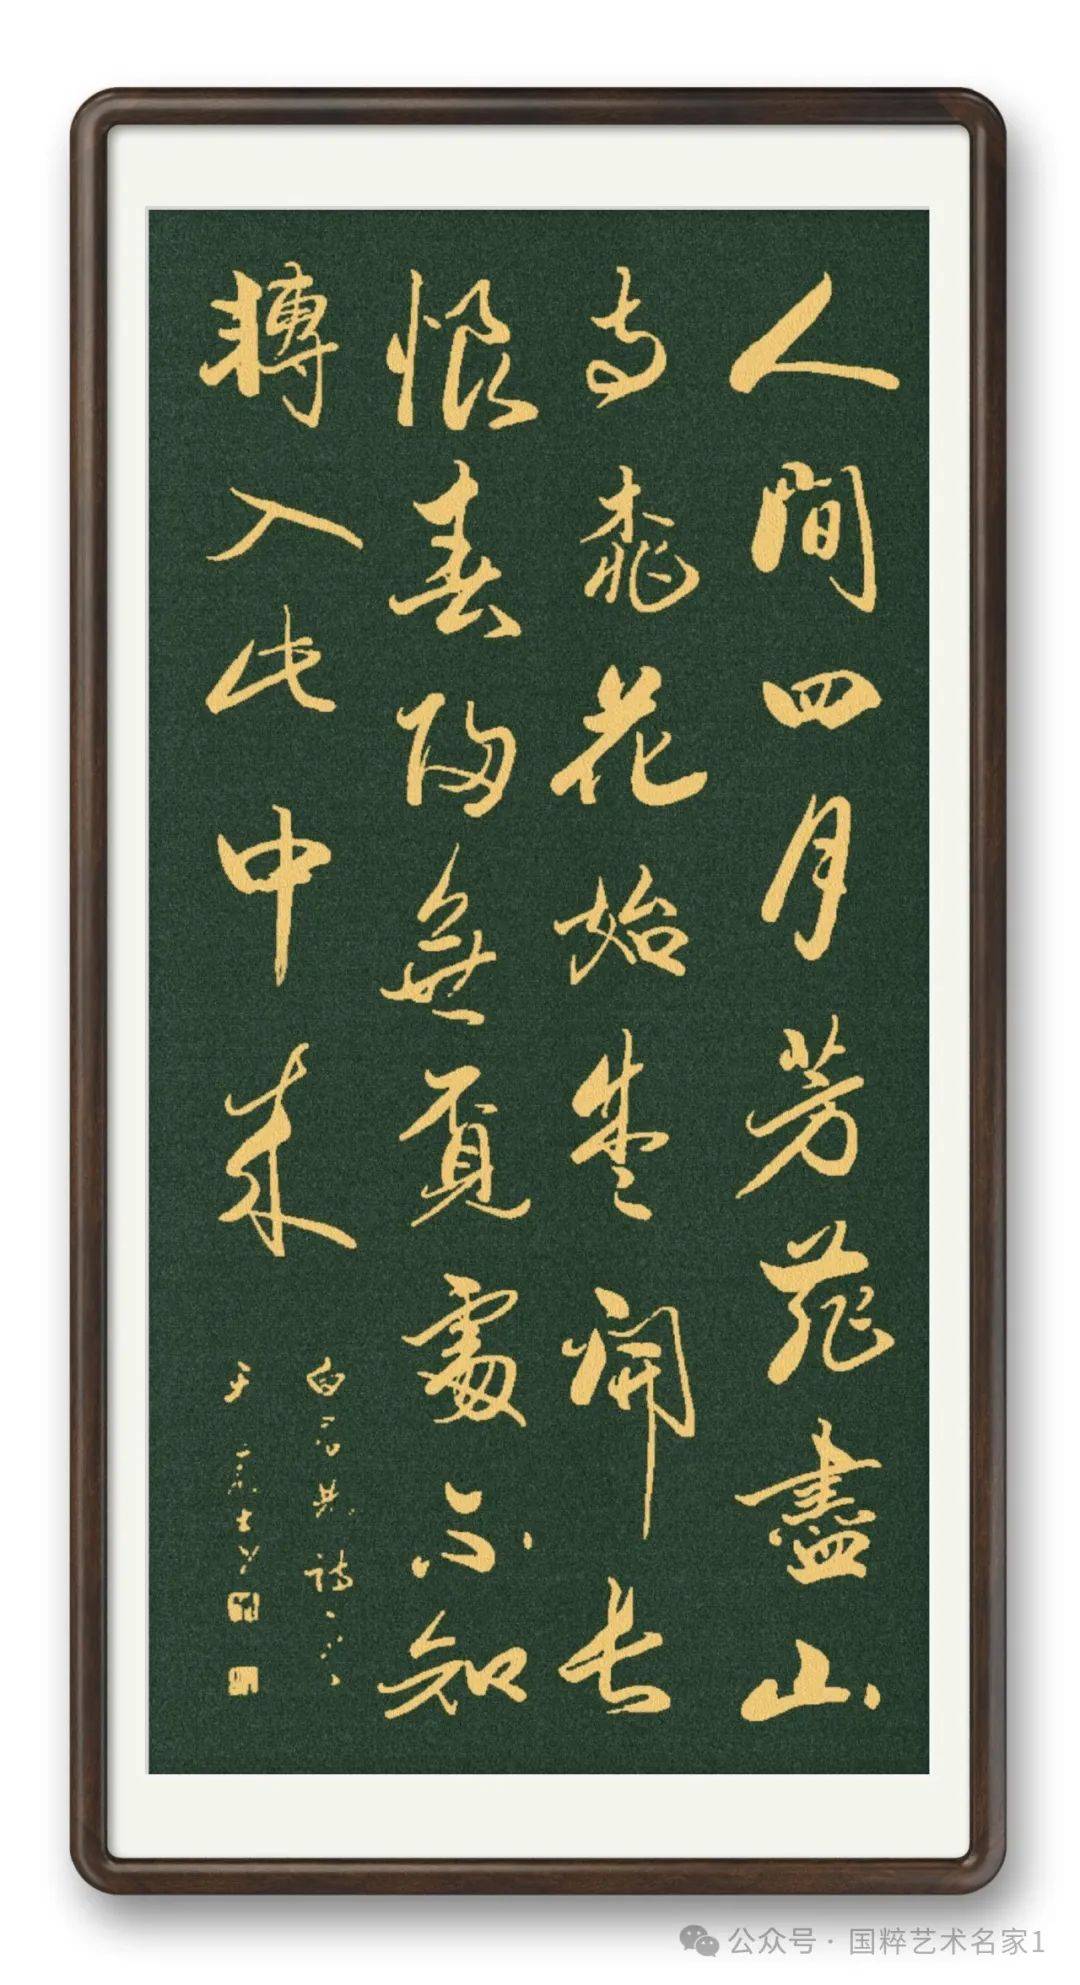 人間四月芳菲盡山
寺桃花始盛開長
恨春歸無覓處不知
轉入此中來
白居易詩一首
公众号 · 国粹艺术名家1